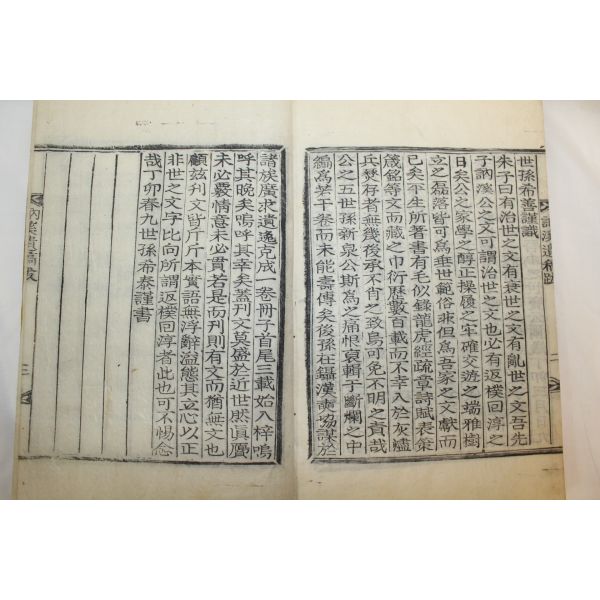 世孫希善謹識
朱子曰有治世之文有衰世之文有亂世之文吾先
子訥溪公之文可謂治世之文也必有返樸回淳之
日矣公之家學之醇正操履之牢確交遊之端雅樹
立之磊落皆可爲垂世範俗非但爲吾家之文獻而
已矣平生所著書有毛似錄龍虎經疏章詩賦表策
箴銘等文而藏之巾衍歷數百載而不幸入於灰爐
兵燹存者無幾後承不肖之致烏可免不明之責哉
公之五世孫新泉公斯爲之痛恨裒輯于斷爛之中
編爲若干卷而未能壽傳矣後孫在鑷漢 協謀於
諸族廣求遺逸克成一卷冊子首尾三載始入梓嗚
呼其晚矣嗚呼其幸矣蓋刊文莫盛於近世然眞贗
未必覈情意未必貫若是而刊則有文而猶無文也
顧玆刊文皆斤斤本質語無浮辭溢態其立心以正
非世之文字比向所謂返樸回淳者此也可不惕念
哉丁卯春九世孫希泰謹書
訥溪遺稿跋
二